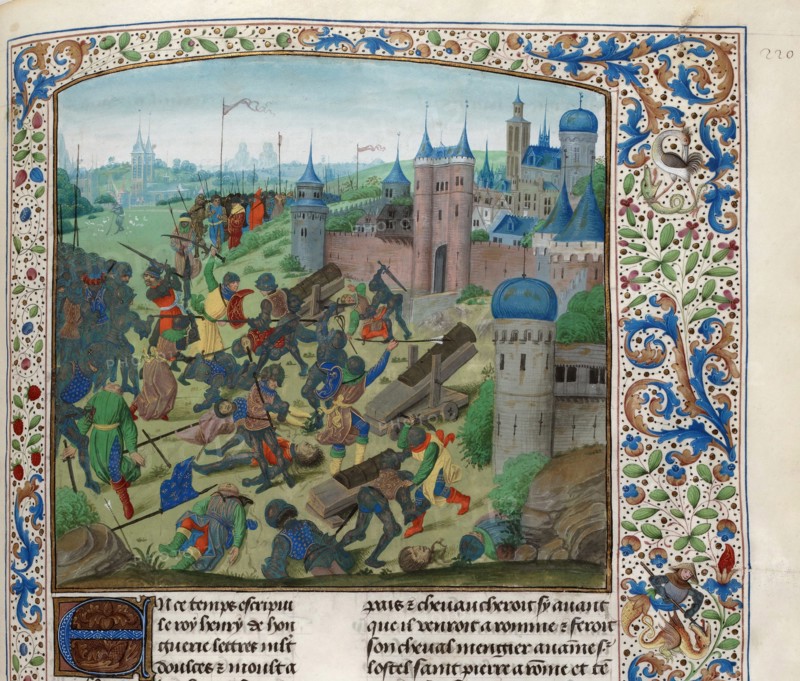 220
En ce temps escripui
le roy henry de hon
guerie lettres mlt
doulces ⁊ moult a
pais ⁊ cheuaucheroit sy auant
que il venroit a romme ⁊ feroit
son cheual mengier auaines
lostel saint pierre a rome et